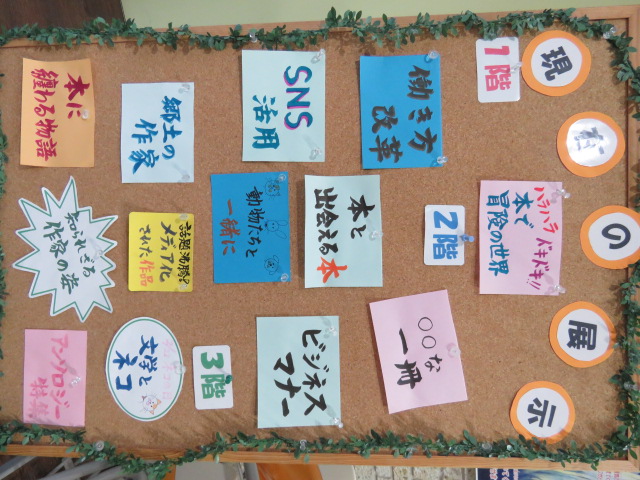 現在の展示
1階
働き方
改革
SNS
活用
郷土の
作家
本に
纏わる物語
ハラハラドキドキ!!
本で
冒険の世界
2階
本と
出会える本
動物たちと
一緒に
メディア化
された作品
知られざる
作家の姿
○○な
一冊
ビジネス
マナー
3階
文学と
ネコ
アンソロジー
特集